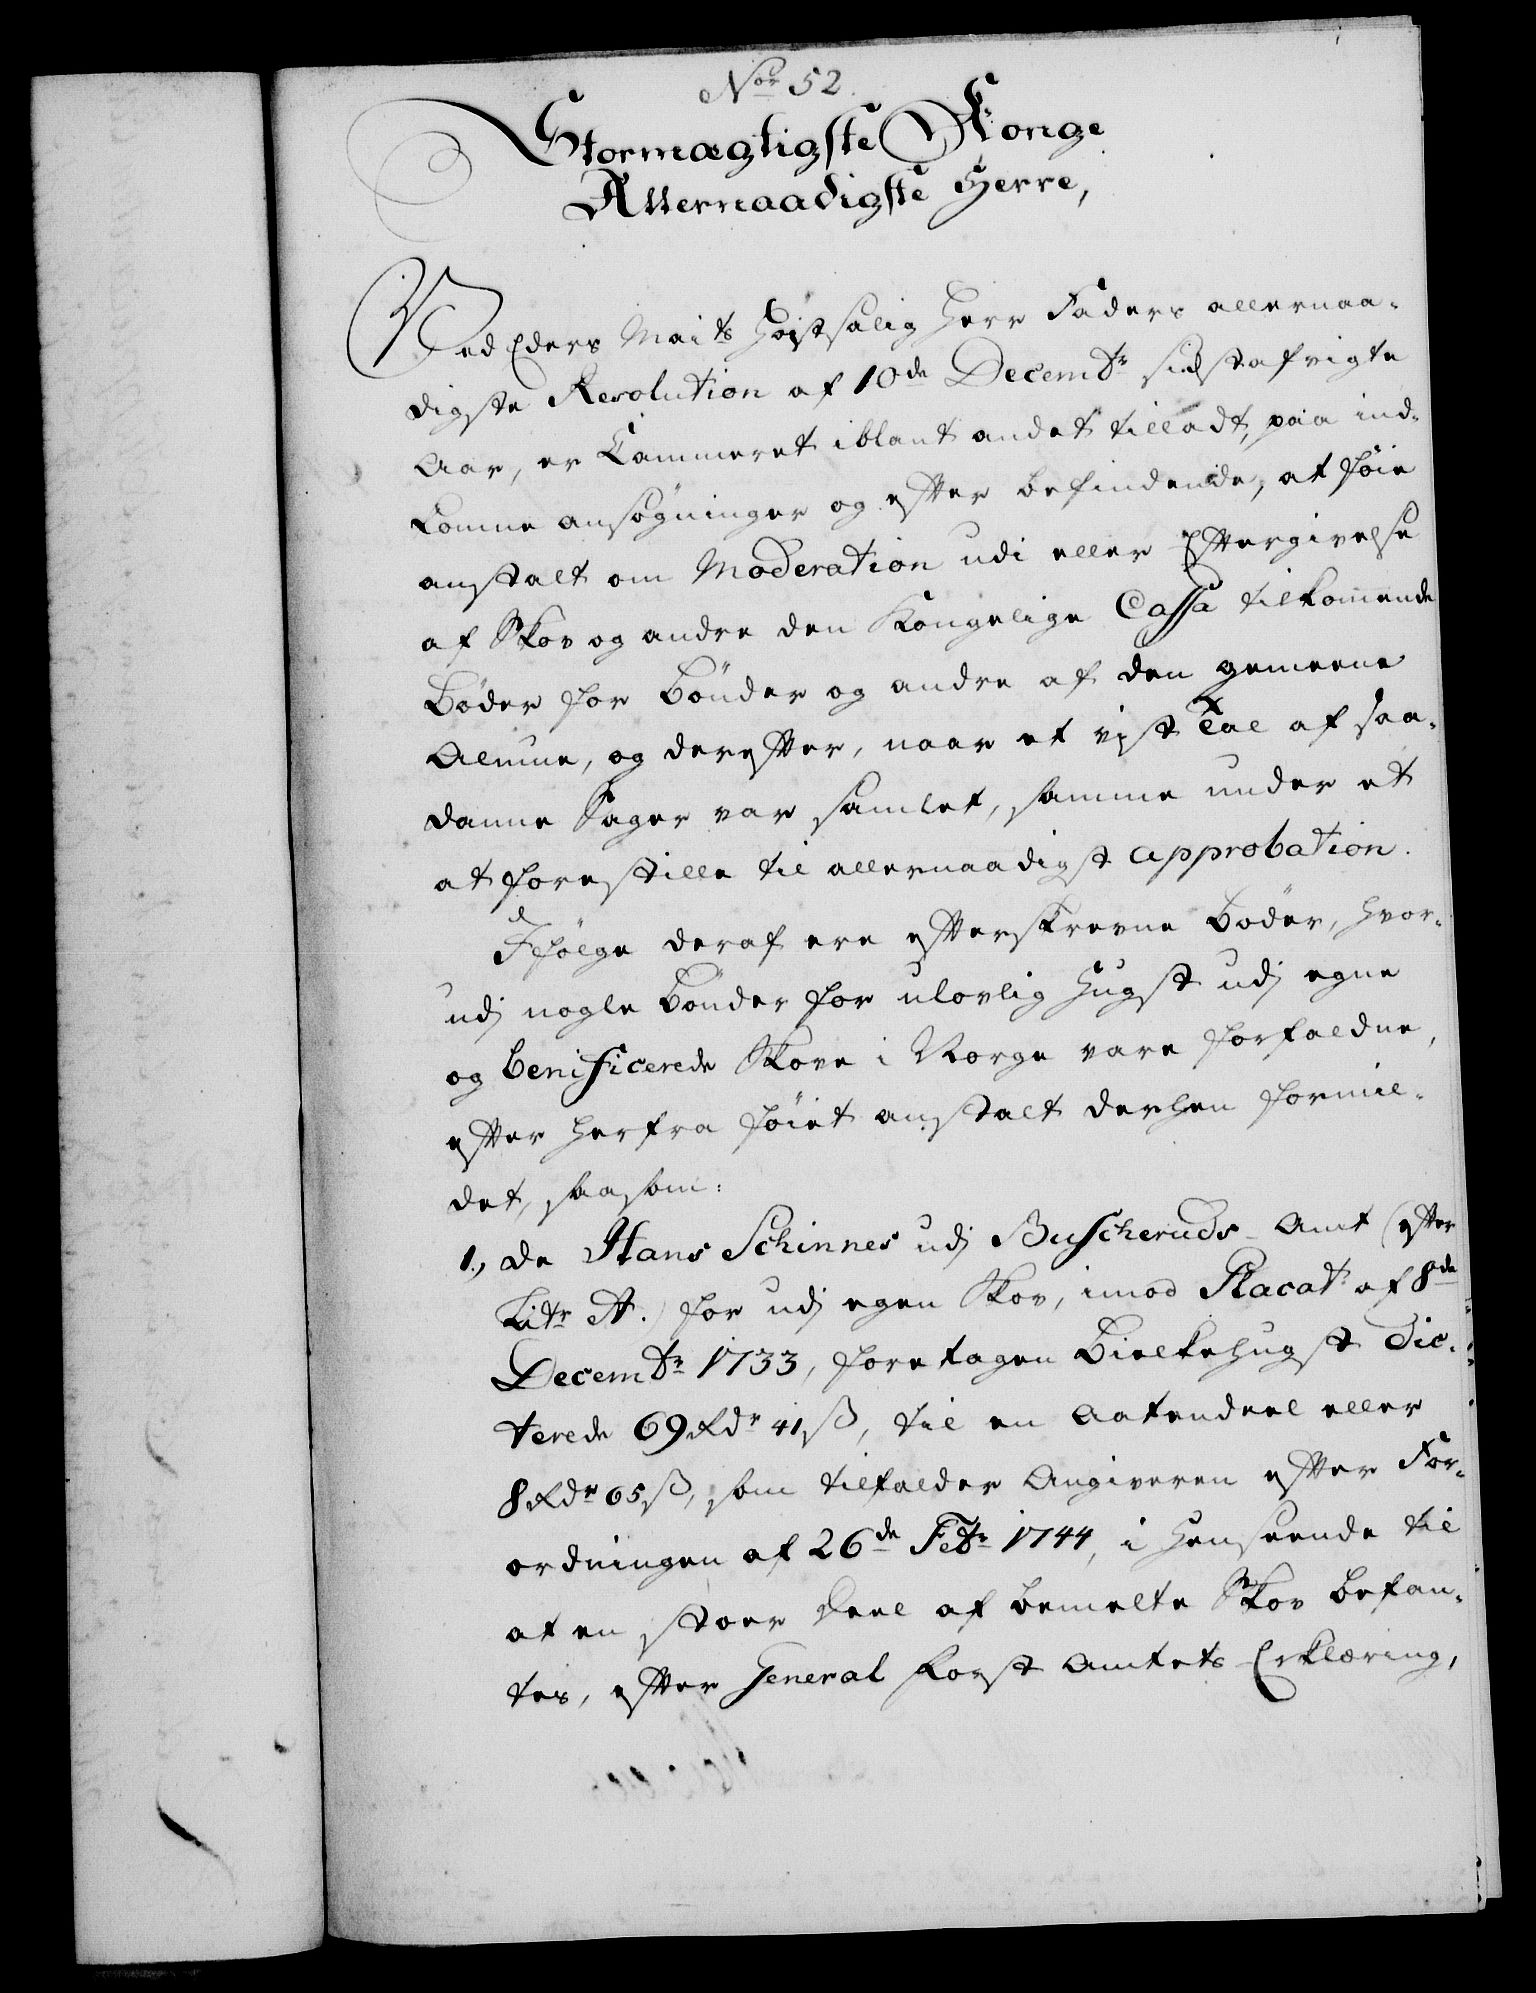 Nor 52.
Stormægtigste Konge
Allernaadigste Herre,
Ved Eders Maits Høistsalig Herr Faders allernaa-
digste Resolution af 10de Decembr sidstafvigte
Aar, er Kammeret iblant andet tilladt, paa ind-
komne ansøgninger og efter befindende, at føie
anstalt om Moderation udi eller Eftergivelse
af Skov og andre den Kongelige Cassa tilkommende
Bøder for Bønder og andre af den gemeene
Almue, og derefter, naar et vist Tal af saa-
danne Sager var samlet, samme under et
at forestille til allernaadigst approbation.
Ifølge deraf ere efterskrevne Bøder, hvor-
udj nogle Bønder for ulovlig Hugst udj egne
og benificerede Skove i Norge vare forfaldne,
efter herfra føiet anstalt derhen formil-
det, saasom:
1., De Hans Schinnes udj Buscheruds Amt (efter
Litr A.) for udj egen Skov, imod Placat af 8de
Decembr 1733, foretagen Bielkehugst dic-
terede 69 Rdr 41 ß, til en Aatendeel eller
8 Rdr 65 ß, som tilfalder Angiveren efter For-
ordningen af 26de Febr 1744, i Henseende til
at en stoer Deel af bemelte Skov befan-
tes, efter General Forst Amtets Erklæring,